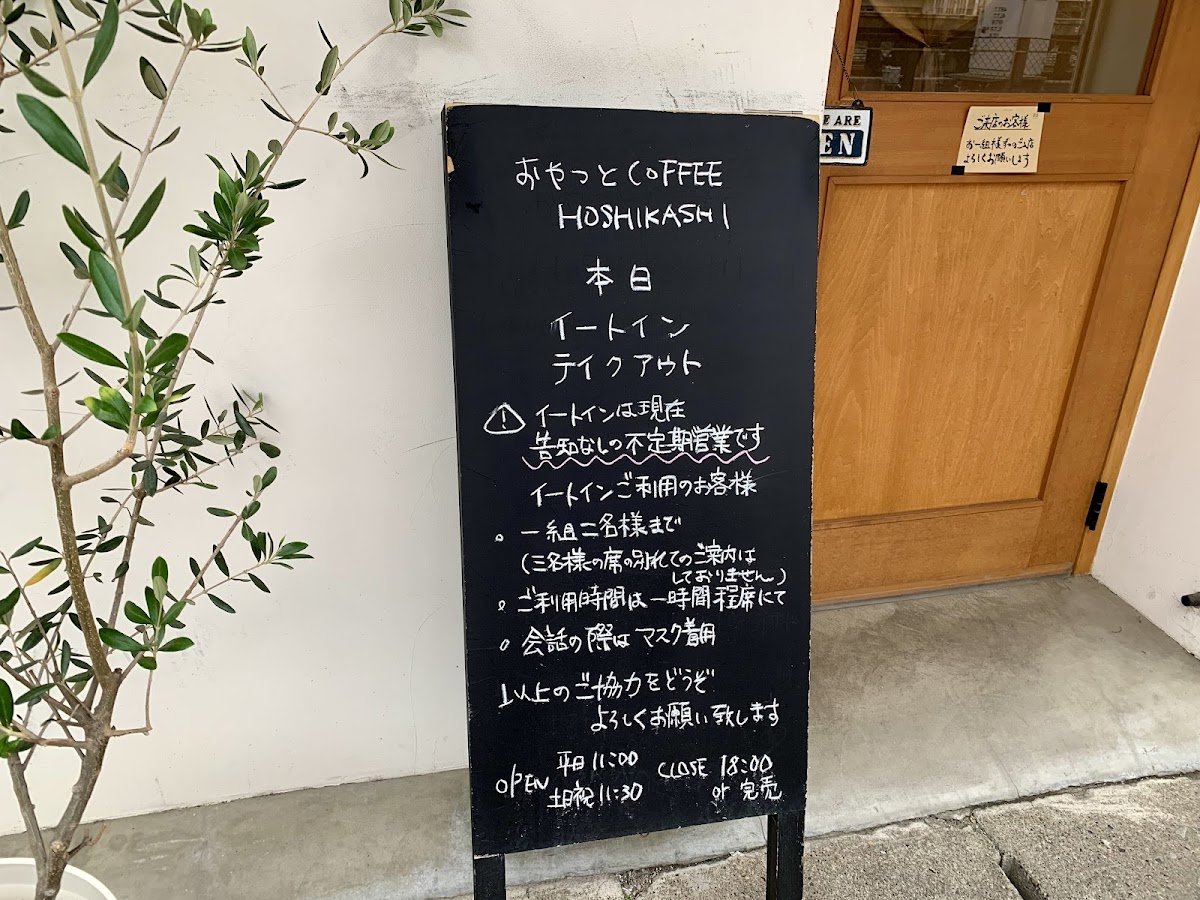 おやつとCOFFEE
HOSHIKASHI
本日
イートイン
テイクアウト
イートインは現在
告知なしの不定期営業です
イートインご利用のお客様
。一組二名様まで
(三名様の席の別れてのご案内は
しておりません。)
。ご利用時間は一時間程席にて
。会話の際はマスク着用
以上のご協力をどうぞ
よろしくお願い致します
OPEN 平日11:00 CLOSE 18:00
土日祝11:30 or 完売
E ARE
EN
ご来店のお客様
お一組様ずつのご入店
よろしくお願いします